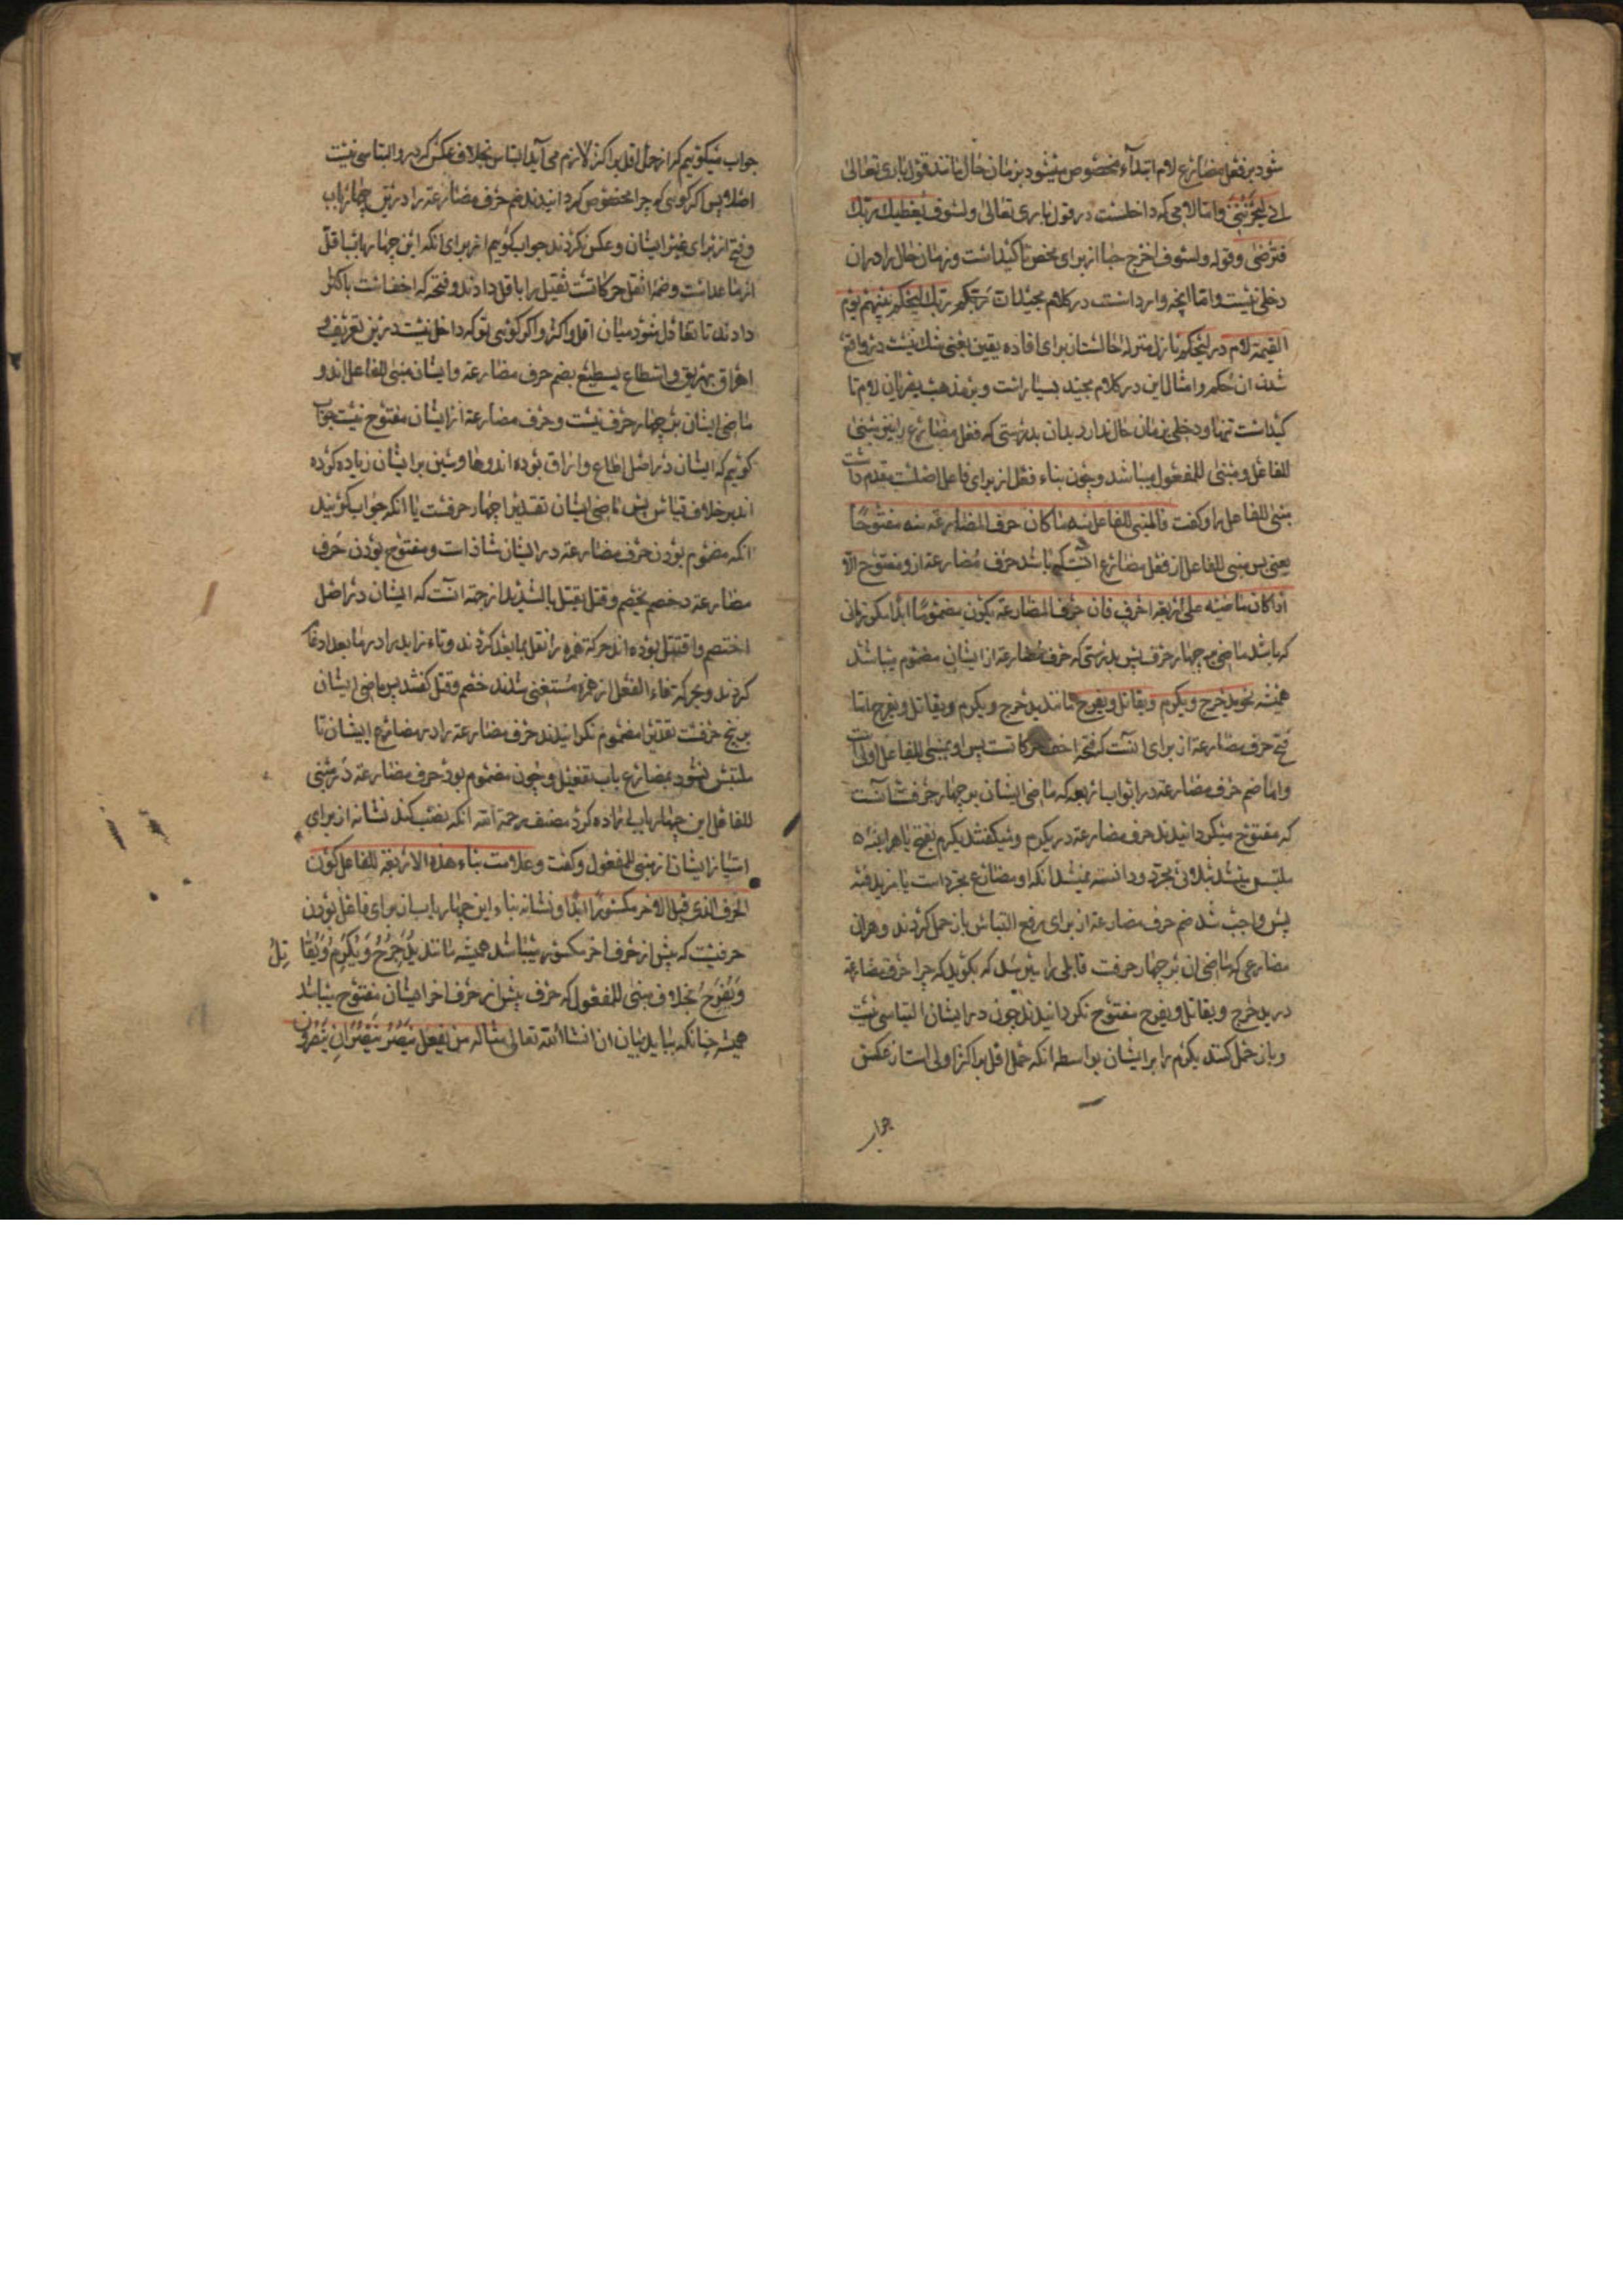 شود بر فعل مضارع لام ابتداء مخصوص میشود بزمان حال مانند قول باری تعالی
انی لیحزننی و اما لامی که داخلست در قول باری تعالی ولسوف یعطیك ربك
فترضی وقوله ولسوف اخرج حیا از برای محض تاکیداست و زمان حال را در ان
دخلی نیست و اما انچه وارد است در کلام مجید ان ربکم ربك لیحکم بینهم یوم
القیمة لام در لیحکم نازل منزله حالست از برای افاده یقین یعنی شك نیست در واقع
شدن ان حکم و امثال این در کلام مجید بسیار است و بمذهب بصریان لام تا
کیداست تنها و دخلی بزمان حال ندارد بدان بدرستی که فعل مضارع را نیز مبنی
للفاعل و مبنی للمفعول میباشد و چون بناء فعل از برای فاعل اصلست مقدم داشت
مبنی للفاعل را و گفت فالمبنی للفاعل منه ما کان حرف المضارعة منه مفتوحا
یعنی پس مبنی للفاعل از فعل مضارع انست که باشد حرف مضارعة از و مفتوح الا
اذا کان ماضیه علی اربعة احرف فان حرف المضارعة یکون مضموما ابدا مگر زمانی
که باشد ماضی بر چهار حرف پس بدرستی که حرف مضارعة از ایشان مضموم میباشد
همیشه نحو یدحرج ویکرم ویقاتل ویفرح مانند یدحرج ویکرم ویقاتل ویفرح اما
فتح حرف مضارعة از برای انست که فتحه اخف حرکاتست پس او بمبنی للفاعل اولی است
و اما ضم حرف مضارعة در ابواب اربعه که ماضی ایشان بر چهار حرفست آنست
که مفتوح میگردانیدند حرف مضارعة در یکرم و میگفتند یکرم بفتح یا هراینه
ملتبس میشد بثلاثی مجرد و دانسته نمیشد انکه او مضارع مجرد است یا مزید فیه
پس واجب شد ضم حرف مضارعة از برای رفع التباس باز حمل کردند و هران
مضارعی که ماضی ان بر چهار حرفست قابلی را میرسد که بگوید که چرا حرف مضارعة
در یدحرج ویقاتل ویفرح مفتوح نگردانیدند چون در ایشان التباسی نیست
و باز حمل کنند یکرم را بر ایشان بواسطه انکه حمل اقل بر اکثر اولی است از عکس
جواب
جواب میگوئیم که از حمل اقل بر اکثر لازم می آید التباس بخلاف عکس که در و التباسی نیست
اصلا پس اگر گوئی که چرا مخصوص گردانیدند ضم حرف مضارعة را درین چهار باب
و فتح از برای غیر ایشان و عکس نکردند جواب گوئیم از برای انکه این چهار باب باقل
از ما عداست و ضمه اثقل حرکاتست ثقیل را باقل دادند و فتحه که اخف است باکثر
دادند تا تعادل شود میان اقل و اکثر و اگر گوئی تو که داخل نیست درین تعریف
اهراق یهریق و اسطاع یسطیع بضم حرف مضارعة و ایشان مبنی للفاعل اند و
ماضی ایشان بر چهار حرف نیست و حرف مضارعة از ایشان مفتوح نیست جواب
گوئیم که ایشان در اصل اطاع و اراق بوده اند و ها و سین بر ایشان زیاده کرده
اند بر خلاف قیاس پس ماضی ایشان تقدیرا چهار حرفست یا انکه جواب گوئید
انکه مضموم بودن حرف مضارعة در ایشان شاذ است و مفتوح بودن حرف
مضارعة در خصم یخصم و قتل یقتل بالتشدید از جهة انست که ایشان در اصل
اختصم و اقتتل بوده اند حرکة همزه را نقل بما بعد کردند و تاء زاید را در ما بعد ادغام
کردند و بحرکة فاء الفعل از همزه مستغنی شدند خصم و قتل گفتند پس ماضی ایشان
بر پنج حرفست تقدیرا مضموم نگردانیدند حرف مضارعة را در مضارع ایشان تا
ملتبس نشود بمضارع باب تفعیل و چون مضموم بود حرف مضارعة در مبنی
للفاعل این چهار باب اراده کرد مصنف رحمة الله انکه نصب کند نشانه از برای
امتیاز ایشان از مبنی للمفعول و گفت وعلامت بناء هذه الاربعة للفاعل کون
الحرف الذی قبل الاخر مکسورا ابدا و نشانه بناء این چهار باب از برای فاعل بودن
حرفیست که پیش از حرف اخر مکسور میباشد همیشه مانند یدحرج ویکرم ویقاتل
ویفرح بخلاف مبنی للمفعول که حرف پیش از حرف اخر ایشان مفتوح میباشد
همیشه چنانکه بیاید بیان ان انشا الله تعالی مثاله من یفعل ینصر ینصران ینصرون